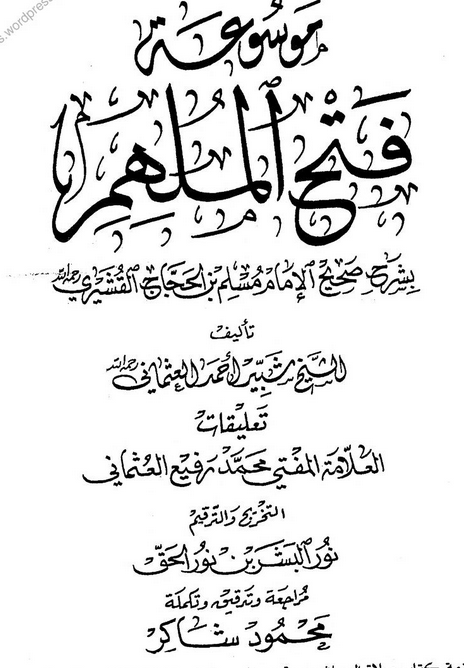 s.wordpress
مَوسُوعَة
فَتْحُ المُلْهِم
بِشَرْحِ صَحِيحِ الإِمَام مُسْلِم بْنِ الحَجَّاجِ القُشَيْرِي رحمه الله
تأليف
الشَّيْخ شَبِّير أَحْمَد العُثْمَانِي رحمه الله
تَعْلِيقَات
العَلَّامَة المُفْتِي مُحَمَّد رَفِيع العُثْمَانِي
التَّخْرِيج وَالتَّرْقِيم
نُور البَشَر بْنِ نُور الحَقّ
مُرَاجَعَة وَتَدْقِيق وَتَكْمِلَة
مَحْمُود شَاكِر